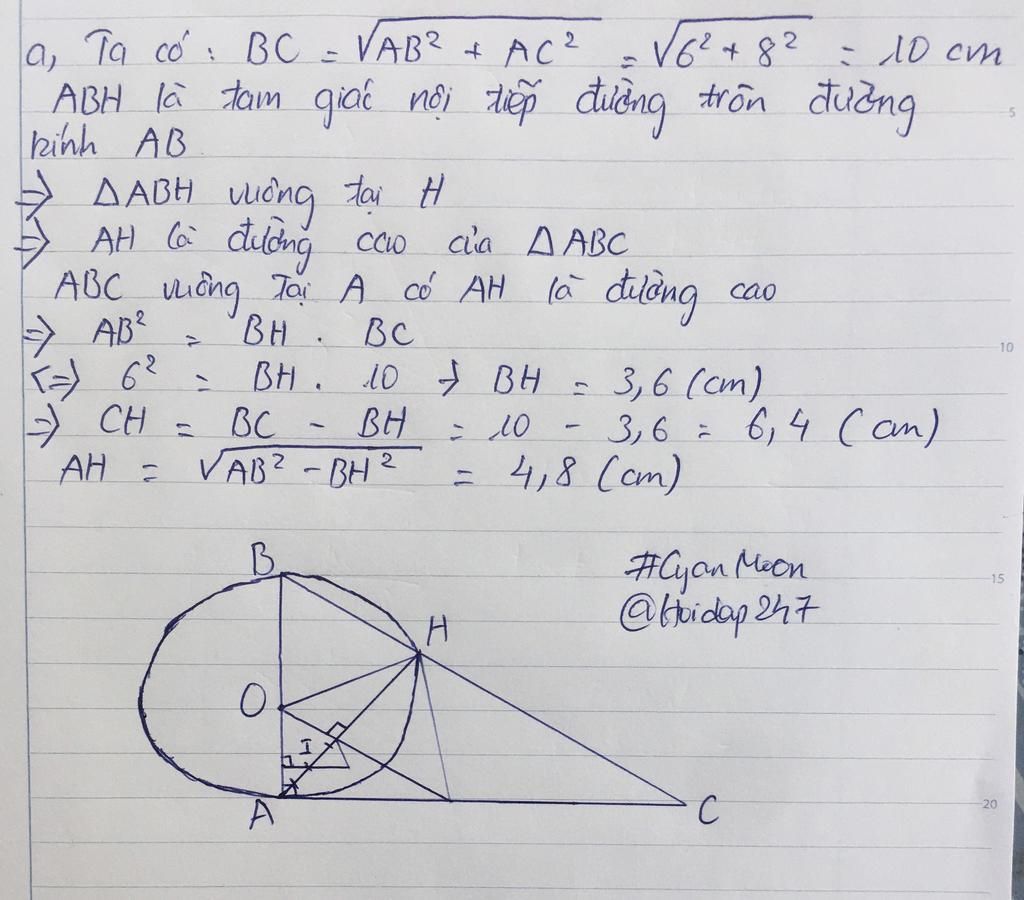 a, Ta có : BC = √AB² + AC² = √6² + 8² = 10 cm
ABH là tam giác nội tiếp đường tròn đường
kính AB
=> △ABH vuông tại H
=> AH là đường cao của △ABC
ABC vuông tại A có AH là đường cao
=> AB² = BH . BC
<=> 6² = BH . 10 => BH = 3,6 (cm)
=> CH = BC - BH = 10 - 3,6 = 6,4 (cm)
AH = √AB² - BH² = 4,8 (cm)
B
#CyanMoon
@Hoidap247
H
O
I
A
C
5
10
15
20